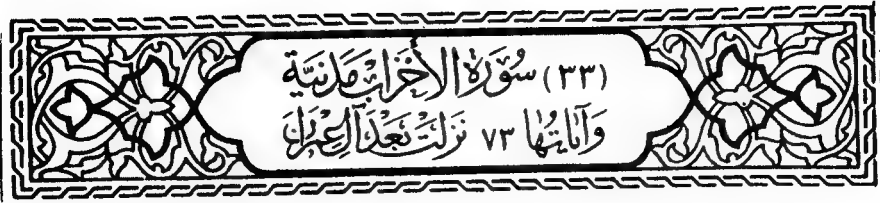 (٣٣) سُورَة الأَحْزَابْ مَدَنِيَّة
وَآيَاتُهَا ٧٣ نَزَلَتْ بَعْدَ آلِ عِمْرَانَ